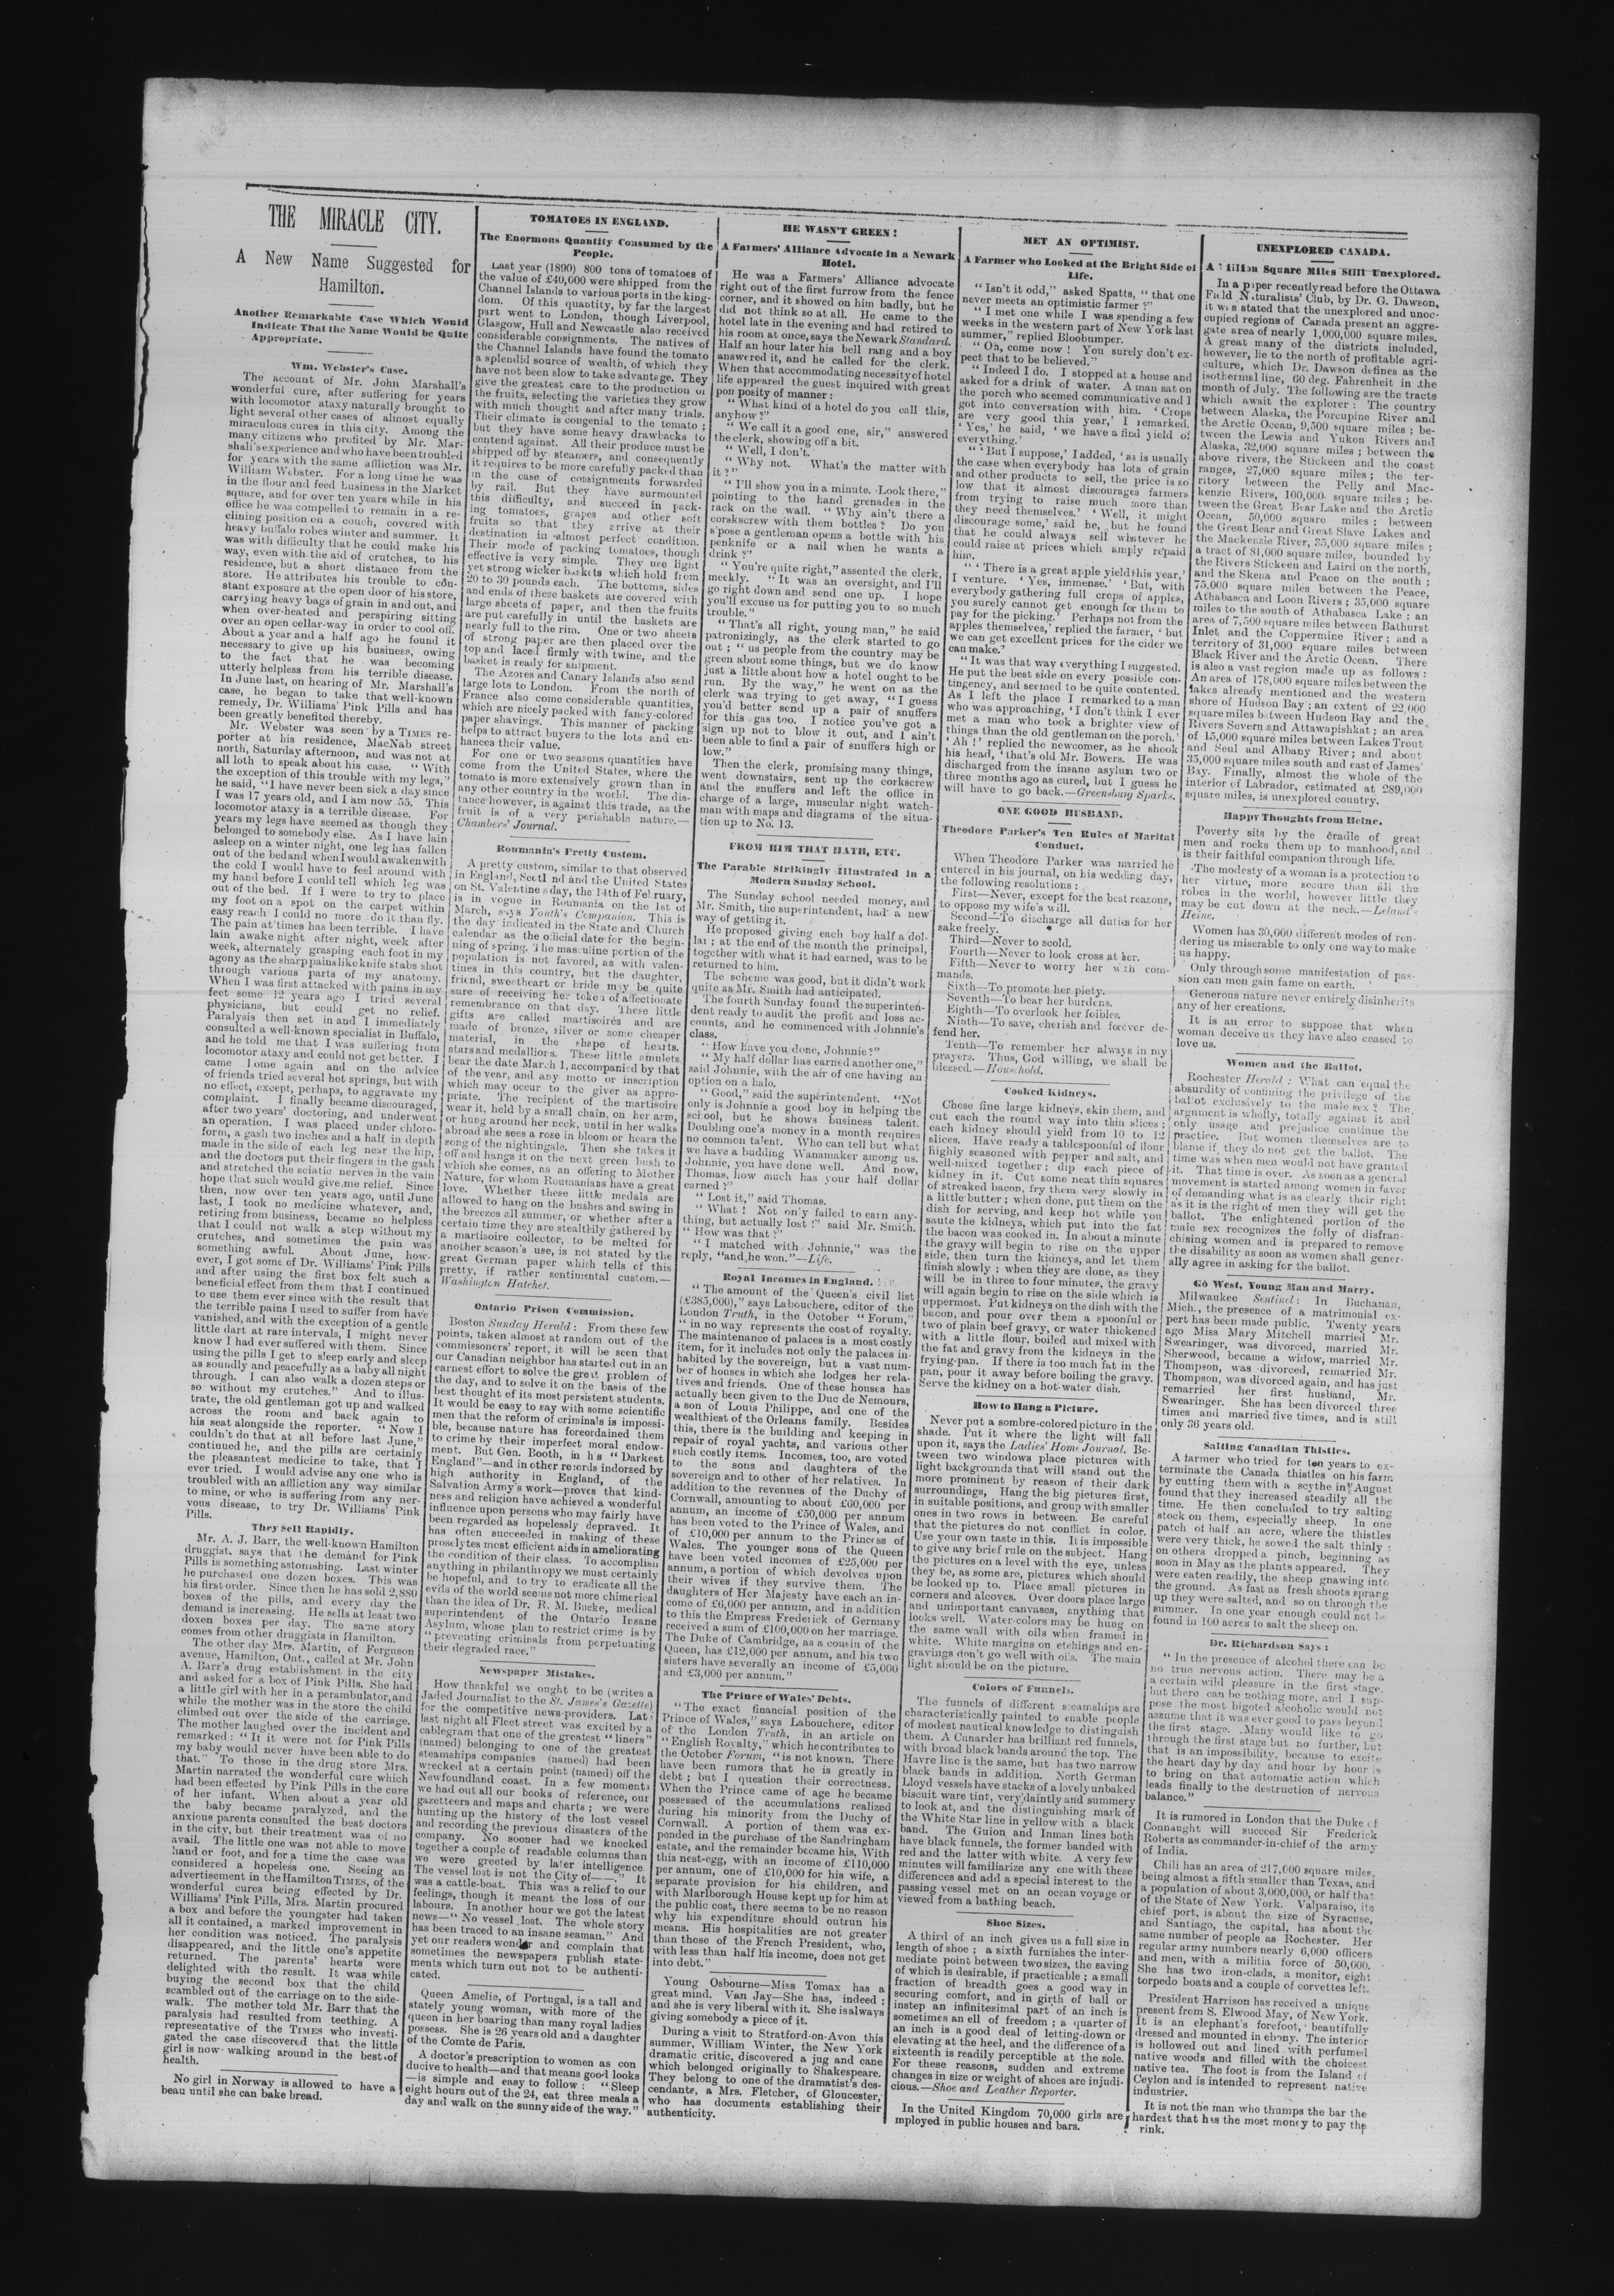 THE MIRACLE CITY.
A New Name Suggested for
Hamilton.
Another Remarkable Case Which Would
Indicate That the Name Would be Quite
Appropriate.
Wm. Webster's Case.
The account of Mr. John Marshall's
wonderful cure, after suffering for years
with locomotor ataxy naturally brought to
light several other cases of almost equally
miraculous cures in this city. Among the
many citizens who profited by Mr. Mar-
shall's experience and who have been troubled
for years with the same affliction was Mr.
William Webster. For a long time he was
in the flour and feed business in the Market
square, and for over ten years while in his
office he was compelled to remain in a re-
clining position on a couch, covered with
heavy buffalo robes winter and summer. It
was with difficulty that he could make his
way, even with the aid of crutches, to his
residence, but a short distance from the
store. He attributes his trouble to con-
stant exposure at the open door of his store,
carrying heavy bags of grain in and out, and
when over-heated and perspiring sitting
over an open cellar-way in order to cool off.
About a year and a half ago he found it
necessary to give up his business, owing
to the fact that he was becoming
utterly helpless from his terrible disease.
In June last, on hearing of Mr. Marshall's
case, he began to take that well-known
remedy, Dr. Williams' Pink Pills and has
been greatly benefited thereby.
Mr. Webster was seen by a TIMES re-
porter at his residence, MacNab street
north, Saturday afternoon, and was not at
all loth to speak about his case. "With
the exception of this trouble with my legs,"
he said, "I have never been sick a day since
I was 17 years old, and I am now 55. This
locomotor ataxy is a terrible disease. For
years my legs have seemed as though they
belonged to somebody else. As I have lain
asleep on a winter night, one leg has fallen
out of the bed and when I would awaken with
the cold I would have to feel around with
my hand before I could tell which leg was
out of the bed. If I were to try to place
my foot on a spot on the carpet within
easy reach I could no more do it than fly.
The pain at times has been terrible. I have
lain awake night after night, week after
week, alternately grasping each foot in my
agony as the sharp pains like knife stabs shot
through various parts of my anatomy.
When I was first attacked with pains in my
feet some 12 years ago I tried several
physicians, but could get no relief.
Paralysis then set in and I immediately
consulted a well-known specialist in Buffalo,
and he told me that I was suffering from
locomotor ataxy and could not get better. I
came home again and on the advice
of friends tried several hot springs, but with
no effect, except, perhaps, to aggravate my
complaint. I finally became discouraged,
after two years' doctoring, and underwent
an operation. I was placed under chloro-
form, a gash two inches and a half in depth
made in the side of each leg near the hip,
and the doctors put their fingers in the gash
and stretched the sciatic nerves in the vain
hope that such would give me relief. Since
then, now over ten years ago, until June
last, I took no medicine whatever, and,
retiring from business, became so helpless
that I could not walk a step without my
crutches, and sometimes the pain was
something awful. About June, how-
ever, I got some of Dr. Williams' Pink Pills
and after using the first box felt such a
beneficial effect from them that I continued
to use them ever since with the result that
the terrible pains I used to suffer from have
vanished, and with the exception of a gentle
little dart at rare intervals, I might never
know I had ever suffered with them. Since
using the pills I get to sleep early and sleep
as soundly and peacefully as a baby all night
through. I can also walk a dozen steps or
so without my crutches." And to illus-
trate, the old gentleman got up and walked
across the room and back again to
his seat alongside the reporter. "Now I
couldn't do that at all before last June,"
continued he, and the pills are certainly
the pleasantest medicine to take, that I
ever tried. I would advise any one who is
troubled with an affliction any way similar
to mine, or who is suffering from any ner-
vous disease, to try Dr. Williams' Pink
Pills.
They Sell Rapidly.
Mr. A. J. Barr, the well-known Hamilton
druggist, says that the demand for Pink
Pills is something astonishing. Last winter
he purchased one dozen boxes. This was
his first order. Since then he has sold 2,880
boxes of the pills, and every day the
demand is increasing. He sells at least two
doxen boxes per day. The same story
comes from other druggists in Hamilton.
The other day Mrs. Martin, of Ferguson
avenue, Hamilton, Ont., called at Mr. John
A. Barr's drug establishment in the city
and asked for a box of Pink Pills. She had
a little girl with her in a perambulator, and
while the mother was in the store the child
climbed out over the side of the carriage.
The mother laughed over the incident and
remarked: "It it were not for Pink Pills
my baby would never have been able to do
that." To those in the drug store Mrs.
Martin narrated the wonderful cure which
had been effected by Pink Pills in the cure
of her infant. When about a year old
the baby became paralyzed, and the
anxious parents consulted the best doctors
in the city, but their treatment was of no
avail. The little one was not able to move
hand or foot, and for a time the case was
considered a hopeless one. Seeing an
advertisement in the Hamilton TIMES, of the
wonderful cures being effected by Dr.
Williams' Pink Pills, Mrs. Martin procured
a box and before the youngster had taken
all it contained, a marked improvement in
her condition was noticed. The paralysis
disappeared, and the little one's appetite
returned. The parents' hearts were
delighted with the result. It was while
buying the second box that the child
scambled out of the carriage on to the side-
walk. The mother told Mr. Barr that the
paralysis had resulted from teething. A
representative of the TIMES who investi-
gated the case discovered that the little
girl is now walking around in the best of
health.
No girl in Norway is allowed to have a
beau until she can bake bread.
TOMATOES IN ENGLAND.
The Enormous Quantity Consumed by the
People.
Last year (1890) 800 tons of tomatoes of
the value of £40,600 were shipped from the
Channel Islands to various ports in the king-
dom. Of this quantity, by far the largest
part went to London, though Liverpool,
Glasgow, Hull and Newcastle also received
considerable consignments. The natives of
the Channel Islands have found the tomato
a splendid source of wealth, of which they
have not been slow to take advantage. They
give the greatest care to the production of
the fruits, selecting the varieties they grow
with much thought and after many trials.
Their climate is congenial to the tomato;
but they have some heavy drawbacks to
contend against. All their produce must be
shipped off by steamers, and consequently
it requires to be more carefully packed than
in the case of consignments forwarded
by rail. But they have surmounted
this difficulty, and succeed in pack-
ing tomatoes, grapes and other soft
fruits so that they arrive at their
destination in almost perfect condition.
Their mode of packing tomatoes, though
effective is very simple. They use light
yet strong wicker baskets which hold from
20 to 30 pounds each. The bottoms, sides
and ends of these baskets are covered with
large sheets of paper, and then the fruits
are put carefully in until the baskets are
nearly full to the rim. One or two sheets
of strong paper are then placed over the
top and laced firmly with twine, and the
basket is ready for shipment.
The Azores and Canary Islands also send
large lots to London. From the north of
France also come considerable quantities,
which are nicely packed with fancy-colored
paper shavings. This manner of packing
helps to attract buyers to the lots and en-
hances their value.
For one or two seasons quantities have
come from the United States, where the
tomato is more extensively grown than in
any other country in the world. The dis-
tance however, is against this trade, as the
fruit is of a very perishable nature.—
Chambers' Journal.
Roumania's Pretty Custom.
A pretty custom, similar to that observed
in England, Scotl nd and the United States
on St. Valentine s day, the 14th of February,
is in vogue in Roumania on the 1st of
March, says Youth's Companion. This is
the day indicated in the State and Church
calendar as the official date for the begin-
ning of spring. The masculine portion of the
population is not favored, as with valen-
tines in this country, but the daughter,
friend, sweetheart or bride may be quite
sure of receiving her token of affectionate
remembrance on that day. These little
gifts are called martisoires and are
made of bronze, silver or some cheaper
material, in the shape of hearts,
stars and medallions. These little amulets
bear the date March 1, accompanied by that
of the year, and any motto or inscription
which may occur to the giver as appro-
priate. The recipient of the martisoire
wear it, held by a small chain, on her arm,
or hung around her neck, until in her walks
abroad she sees a rose in bloom or hears the
song of the nightingale. Then she takes it
off and hangs it on the next green bush to
which she comes, as an offering to Mother
Nature, for whom Roumanians have a great
love. Whether these little medals are
allowed to hang on the bushes and swing in
the breezes all summer, or whether after a
certain time they are stealthily gathered by
a martisoire collector, to be melted for
another season's use, is not stated by the
great German paper which tells of this
pretty, if rather sentimental custom.—
Washington Hatchet.
Ontario Prison Commission.
Boston Sunday Herald: From these few
points, taken almost at random out of the
commissoners' report, it will be seen that
our Canadian neighbor has started out in an
earnest effort to solve the great problem of
the day, and to solve it on the basis of the
best thought of its most persistent students.
It would be easy to say with some scientific
men that the reform of criminals is impossi-
ble, because nature has foreordained them
to crime by their imperfect moral endow-
ment. But Gen. Booth, in h s "Darkest
England"—and in other records indorsed by
high authority in England, of the
Salvation Army's work—proves that kind-
ness and religion have achieved a wonderful
influence upon persons who may fairly have
been regarded as hopelessly depraved. It
has often succeeded in making of these
proselytes most efficient aids in ameliorating
the condition of their class. To accomplish
anything in philanthropy we must certainly
be hopeful, and to try to eradicate all the
evils of the world seems not more chimerical
than the idea of Dr. R. M. Bucke, medical
superintendent of the Ontario Insane
Asylum, whose plan to restrict crime is by
"preventing criminals from perpetuating
their degraded race."
Newspaper Mistakes.
How thankful we ought to be (writes a
Jaded Journalist to the St. James's Gazette)
for the competitive news-providers. Lat
last night all Fleet street was excited by a
cablegram that one of the greatest "liners"
(named) belonging to one of the greatest
steamships companies (named) had been
wrecked at a certain point (named) off the
Newfoundland coast. In a few moments
we had out all our books of reference, our
gazetteers and maps and charts; we were
hunting up the history of the lost vessel
and recording the previous disasters of the
company. No sooner had we knocked
together a couple of readable columns than
we were greeted by later intelligence.
The vessel lost is not the City of——." It
was a cattle-boat. This was a relief to our
feelings, though it meant the loss of our
labours. In another hour we got the latest
news—"No vessel lost. The whole story
has been traced to an insane seaman." And
yet our readers wonder and complain that
sometimes the newspapers publish state-
ments which turn out not to be authenti-
cated.
Queen Amelie, of Portugal, is a tall and
stately young woman, with more of the
queen in her bearing than many royal ladies
possess. She is 26 years old and a daughter
of the Comte de Paris.
A doctor's prescription to women as con
ducive to health—and that means good looks
—is simple and easy to follow: "Sleep
eight hours out of the 24, eat three meals a
day and walk on the sunny side of the way."
HE WASN'T GREEN!
A Farmers' Alliance Advocate in a Newark
Hotel.
He was a Farmers' Alliance advocate
right out of the first furrow from the fence
corner, and it showed on him badly, but he
did not think so at all. He came to the
hotel late in the evening and had retired to
his room at once, says the Newark Standard.
Half an hour later his bell rang and a boy
answered it, and he called for the clerk.
When that accommodating necessity of hotel
life appeared the guest inquired with great
pon posity of manner:
"What kind of a hotel do you call this,
anyhow?"
"We call it a good one, sir," answered
the clerk, showing off a bit.
"Well, I don't.
"Why not. What's the matter with
it?"
"I'll show you in a minute. Look there,"
pointing to the hand grenades in the
rack on the wall. "Why ain't there a
corskscrew with them bottles? Do you
s'pose a gentleman opens a bottle with his
penknife or a nail when he wants a
drink?"
"You're quite right," assented the clerk,
meekly. "It was an oversight, and I'll
go right down and send one up. I hope
you'll excuse us for putting you to so much
trouble."
"That's all right, young man," he said
patronizingly, as the clerk started to go
out; "us people from the country may be
green about some things, but we do know
just a little about how a hotel ought to be
run. By the way," he went on as the
clerk was trying to get away, "I guess
you'd better send up a pair of snuffers
for this gas too. I notice you've got a
sign up not to blow it out, and I ain't
been able to find a pair of snuffers high or
low."
Then the clerk, promising many things,
went downstairs, sent up the corkscrew
and the snuffers and left the office in
charge of a large, muscular night watch-
man with maps and diagrams of the situa-
tion up to No. 13.
FROM HIM THAT HATH, ETC.
The Parable Strikingly Illustrated in a
Modern Sunday School.
The Sunday school needed money, and
Mr. Smith, the superintendent, had a new
way of getting it.
He proposed giving each boy half a dol-
lar; at the end of the month the principal,
together with what it had earned, was to be
returned to him.
The scheme was good, but it didn't work
quite as Mr. Smith had anticipated.
The fourth Sunday found the superinten-
dent ready to audit the profit and loss ac-
counts, and he commenced with Johnnie's
class.
"How have you done, Johnnie?"
"My half dollar has earned another one,"
said Johnnie, with the air of one having an
option on a halo.
"Good," said the superintendent. "Not
only is Johnnie a good boy in helping the
school, but he shows business talent.
Doubling one's money in a month requires
no common talent. Who can tell but what
we have a budding Wanamaker among us.
Johnnie, you have done well. And now,
Thomas, how much has your half dollar
earned?"
"Lost it," said Thomas.
"What! Not only failed to earn any-
thing, but actually lost!" said Mr. Smith.
"How was that?"
"I matched with Johnnie," was the
reply, "and he won."—Life.
Royal Incomes in England.
"The amount of the Queen's civil list
(£385,000)," says Labouchere, editor of the
London Truth, in the October "Forum,"
"in no way represents the cost of royalty.
The maintenance of palaces is a most costly
item, for it includes not only the palaces in-
habited by the sovereign, but a vast num-
ber of houses in which she lodges her rela-
tives and friends. One of these houses has
actually been given to the Duc de Nemours,
a son of Louis Philippe, and one of the
wealthiest of the Orleans family. Besides
this, there is the building and keeping in
repair of royal yachts, and various other
such costly items. Incomes, too, are voted
to the sons and daughters of the
sovereign and to other of her relatives. In
addition to the revenues of the Duchy of
Cornwall, amounting to about £60,000 per
annum, an income of £50,000 per annum
has been voted to the Prince of Wales, and
of £10,000 per annum to the Princess of
Wales. The younger sons of the Queen
have been voted incomes of £25,000 per
annum, a portion of which devolves upon
their wives if they survive them. The
daughters of Her Majesty have each an in-
come of £6,000 per annum, and in addition
to this the Empress Frederick of Germany
received a sum of £100,000 on her marriage.
The Duke of Cambridge, as a cousin of the
Queen, has £12,000 per annum, and his two
sisters have severally an income of £5,000
and £3,000 per annum."
The Prince of Wales' Debts.
"The exact financial position of the
Prince of Wales," says Labouchere, editor
of the London Truth, in an article on
"English Royalty," which he contributes to
the October Forum, "is not known. There
have been rumors that he is greatly in
debt; but I question their correctness.
When the Prince came of age he became
possessed of the accumulations realized
during his minority from the Duchy of
Cornwall. A portion of them was ex-
pended in the purchase of the Sandringham
estate, and the remainder became his. With
this nest-egg, with an income of £110,000
per annum, one of £10,000 for his wife, a
separate provision for his children, and
with Marlborough House kept up for him at
the public cost, there seems to be no reason
why his expenditure should outrun his
means. His hospitalities are not greater
than those of the French President, who,
with less than half his income, does not get
into debt."
Young Osbourne—Miss Tomax has a
great mind. Van Jay—She has, indeed;
and she is very liberal with it. She is always
giving somebody a piece of it.
During a visit to Stratford-on-Avon this
summer, William Winter, the New York
dramatic critic, discovered a jug and cane
which belonged originally to Shakespeare.
They belong to one of the dramatist's des-
cendants, a Mrs. Fletcher, of Gloucester,
who has documents establishing their
authenticity.
MET AN OPTIMIST.
A Farmer who Looked at the Bright Side of
Life.
"Isn't it odd," asked Spatts, "that one
never meets an optimistic farmer?"
"I met one while I was spending a few
weeks in the western part of New York last
summer," replied Bloobumper.
"Oh, come now! You surely don't ex-
pect that to be believed."
"Indeed I do. I stopped at a house and
asked for a drink of water. A man sat on
the porch who seemed communicative and I
got into conversation with him. 'Crops
are very good this year,' I remarked.
'Yes,' he said, 'we have a find yield of
everything.'
"'But I suppose,' I added, 'as is usually
the case when everybody has lots of grain
and other products to sell, the price is so
low that it almost discourages farmers
from trying to raise much more than
they need themselves.' 'Well, it might
discourage some,' said he, but he found
that he could always sell whatever he
could raise at prices which amply repaid
him.
"'There is a great apple yield this year,'
I venture. 'Yes, immense.' 'But, with
everybody gathering full crops of apples,
you surely cannot get enough for them to
pay for the picking.' Perhaps not from the
apples themselves,' replied the farmer, 'but
we can get excellent prices for the cider we
can make.'
"It was that way everything I suggested.
He put the best side on every possible con-
tingency, and seemed to be quite contented.
As I left the place I remarked to a man
who was approaching, 'I don't think I ever
met a man who took a brighter view of
things than the old gentleman on the porch.'
'Ah!' replied the newcomer, as he shook
his head, 'that's old Mr. Bowers. He was
discharged from the insane asylum two or
three months ago as cured, but I guess he
will have to go back.—Greensburg Sparks.
ONE GOOD HUSBAND.
Theodore Parker's Ten Rules of Marital
Conduct.
When Theodore Parker was married he
entered in his journal, on his wedding day,
the following resolutions:
First—Never, except for the best reasons,
to oppose my wife's will.
Second—To discharge all duties for her
sake freely.
Third—Never to scold.
Fourth—Never to look cross at her.
Fifth—Never to worry her with com-
mands.
Sixth—To promote her piety.
Seventh—To bear her burdens.
Eighth—To overlook her foibles.
Ninth—To save, cherish and forever de-
fend her.
Tenth—To remember her always in my
prayers. Thus, God willing, we shall be
blessed.—Household.
Cooked Kidneys.
Chose fine large kidneys, skin them, and
cut each the round way into thin slices;
each kidney should yield from 10 to 12
slices. Have ready a tablespoonful of flour
highly seasoned with pepper and salt, and
well-mixed together; dip each piece of
kidney in it. Cut some neat thin squares
of streaked bacon, fry them very slowly in
a little butter; when done, put them on the
dish for serving, and keep hot while you
saute the kidneys, which put into the fat
the bacon was cooked in. In about a minute
the gravy will begin to rise on the upper
side, then turn the kidneys, and let them
finish slowly; when they are done, as they
will be in three to four minutes, the gravy
will again begin to rise on the side which is
uppermost. Put kidneys on the dish with the
bacon, and pour over them a spoonful or
two of plain beef gravy, or water thickened
with a little flour, boiled and mixed with
the fat and gravy from the kidneys in the
frying-pan. If there is too much fat in the
pan, pour it away before boiling the gravy.
Serve the kidney on a hot-water dish.
How to Hang a Picture.
Never put a sombre-colored picture in the
shade. Put it where the light will fall
upon it, says the Ladies' Home Journal. Be-
tween two windows place pictures with
light backgrounds that will stand out the
more prominent by reason of their dark
surroundings, Hang the big pictures first,
in suitable positions, and group with smaller
ones in two rows in between. Be careful
that the pictures do not conflict in color.
Use your own taste in this. It is impossible
to give any brief rule on the subject. Hang
the pictures on a level with the eye, unless
they be, as some are, pictures which should
be looked up to. Place small pictures in
corners and alcoves. Over doors place large
and unimportant canvases, anything that
looks well. Water-colors may be hung on
the same wall with oils when framed in
white. White margins on etchings and en-
gravings don't go well with oils. The main
light should be on the picture.
Colors of Funnels.
The funnels of different steamships are
characteristically painted to enable people
of modest nautical knowledge to distinguish
them. A Cunarder has brilliant red funnels,
with broad black bands around the top. The
Havre line is the same, but has two narrow
black bands in addition. North German
Lloyd vessels have stacks of a lovely unbaked
biscuit ware tint, very daintly and summery
to look at, and the distinguishing mark of
the White Star line in yellow with a black
band. The Guion and Inman lines both
have black funnels, the former banded with
red and the latter with white. A very few
minutes will familiarize any one with these
differences and add a special interest to the
passing vessel met on an ocean voyage or
viewed from a bathing beach.
Shoe Sizes.
A third of an inch gives us a full size in
length of shoe; a sixth furnishes the inter-
mediate point between two sizes, the saving
of which is desirable, if practicable; a small
fraction of breadth goes a good way in
securing comfort, and in girth of ball or
instep an infinitesimal part of an inch is
sometimes an ell of freedom; a quarter of
an inch is a good deal of letting-down or
elevating at the heel, and the difference of a
sixteenth is readily perceptible at the sole.
For these reasons, sudden and extreme
changes in size or weight of shoes are injudi-
cious.—Shoe and Leather Reporter.
In the United Kingdom 70,000 girls are
mployed in public houses and bars.
UNEXPLORED CANADA.
A illion Square Miles Still Unexplored.
In a paper recently read before the Ottawa
Field Naturalists' Club, by Dr. G. Dawson,
it was stated that the unexplored and unoc-
cupied regions of Canada present an aggre-
gate area of nearly 1,000,000 square miles.
A great many of the districts included,
however, lie to the north of profitable agri-
culture, which Dr. Dawson defines as the
isothermal line, 60 deg. Fahrenheit in the
month of July. The following are the tracts
which await the explorer: The country
between Alaska, the Porcupine River and
the Arctic Ocean, 9,500 square miles; be-
tween the Lewis and Yukon Rivers and
Alaska, 32,000 square miles; between the
above rivers, the Stickeen and the coast
ranges, 27,000 square miles; the ter-
ritory between the Pelly and Mac-
kenzie Rivers, 100,000 square miles; be-
tween the Great Bear Lake and the Arctic
Ocean, 50,000 square miles; between
the Great Bear and Great Slave Lakes and
the Mackenzie River, 35,000 square miles;
a tract of 81,000 square miles, bounded by
the Rivers Stickeen and Laird on the north,
and the Skena and Peace on the south;
75,000 square miles between the Peace,
Athabasca and Loon Rivers; 35,000 square
miles to the south of Athabasca Lake; an
area of 7,500 square miles between Bathurst
Inlet and the Coppermine River; and a
territory of 31,000 square miles between
Black River and the Arctic Ocean. There
is also a vast region made up as follows:
An area of 178,000 square miles between the
lakes already mentioned and the western
shore of Hudson Bay; an extent of 22,000
square miles between Hudson Bay and the
Rivers Severn and Attawapishkat; an area
of 15,000 square miles between Lakes Trout
and Seul and Albany River; and about
35,000 square miles south and east of James'
Bay. Finally, almost the whole of the
interior of Labrador, estimated at 289,000
square miles, is unexplored country.
Happy Thoughts from Heine.
Poverty sits by the cradle of great
men and rocks them up to manhood, and
is their faithful companion through life.
The modesty of a woman is a protection to
her virtue, more secure than all the
robes in the world, however little they
may be cut down at the neck.—Leland's
Heine.
Women has 30,000 different modes of ren-
dering us miserable to only one way to make
us happy.
Only through some manifestation of pas-
sion can men gain fame on earth.
Generous nature never entirely disinherits
any of her creations.
It is an error to suppose that when
woman deceive us they have also ceased to
love us.
Women and the Ballot.
Rochester Herald: What can equal the
absurdity of confining the privilege of the
ballot exclusively to the male sex? The
argument is wholly, totally against it and
only usage and prejudice continue the
practice. But women themselves are to
blame if they do not get the ballot. The
time was when men would not have granted
it. That time is over. As soon as a general
movement is started among women in favor
of demanding what is as clearly their right
as it is the right of men they will get the
ballot. The enlightened portion of the
male sex recognizes the folly of disfran-
chising women and is prepared to remove
the disability as soon as women shall gener-
ally agree in asking for the ballot.
Go West, Young Man and Marry.
Milwaukee Sentinel: In Buchanan,
Mich., the presence of a matrimonial ex-
pert has been made public. Twenty years
ago Miss Mary Mitchell married Mr.
Swearinger, was divorced, married Mr.
Sherwood, became a widow, married Mr.
Thompson, was divorced, remarried Mr.
Thompson, was divorced again, and has just
remarried her first husband, Mr.
Swearinger. She has been divorced three
times and married five times, and is still
only 36 years old.
Salting Canadian Thistles.
A farmer who tried for ten years to ex-
terminate the Canada thistles on his farm
by cutting them with a scythe in August
found that they increased steadily all the
time. He then concluded to try salting
stock on them, especially sheep. In one
patch of half an acre, where the thistles
were very thick, he sowed the salt thinly;
on others dropped a pinch, beginning as
soon in May as the plants appeared. They
were eaten readily, the sheep gnawing into
the ground. As fast as fresh shoots sprang
up they were salted, and so on through the
summer. In one year enough could not be
found in 100 acres to salt the sheep on.
Dr. Richardson Says:
"In the presence of alcohol there can be
no true nervous action. There may be a
a certain wild pleasure in the first stage.
but there can be nothing more, and I sup-
pose the most bigoted alcoholic would not
assume that it was ever good to pass beyond
the first stage. Many would like to go
through the first stage but no further, but
that is an impossibility, because to excite
the heart day by day and hour by hour is
to bring on that automatic action which
leads finally to the destruction of nervous
balance."
It is rumored in London that the Duke of
Connaught will succeed Sir Frederick
Roberts as commander-in-chief of the army
of India.
Chili has an area of 217,000 square miles,
being almost a fifth smaller than Texas, and
a population of about 3,000,000, or half that
of the State of New York. Valparaiso, its
chief port, is about the size of Syracuse,
and Santiago, the capital, has about the
same number of people as Rochester. Her
regular army numbers nearly 6,000 officers
and men, with a militia force of 50,000.
She has two iron-clads, a monitor, eight
torpedo boats and a couple of corvettes left.
President Harrison has received a unique
present from S. Elwood May, of New York.
It is an elephant's forefoot, beautifully
dressed and mounted in ebony. The interior
is hollowed out and lined with perfumed
native woods and filled with the choicest
native tea. The foot is from the Island of
Ceylon and is intended to represent native
industries.
It is not the man who thumps the bar the
hardest that has the most money to pay the
rink.